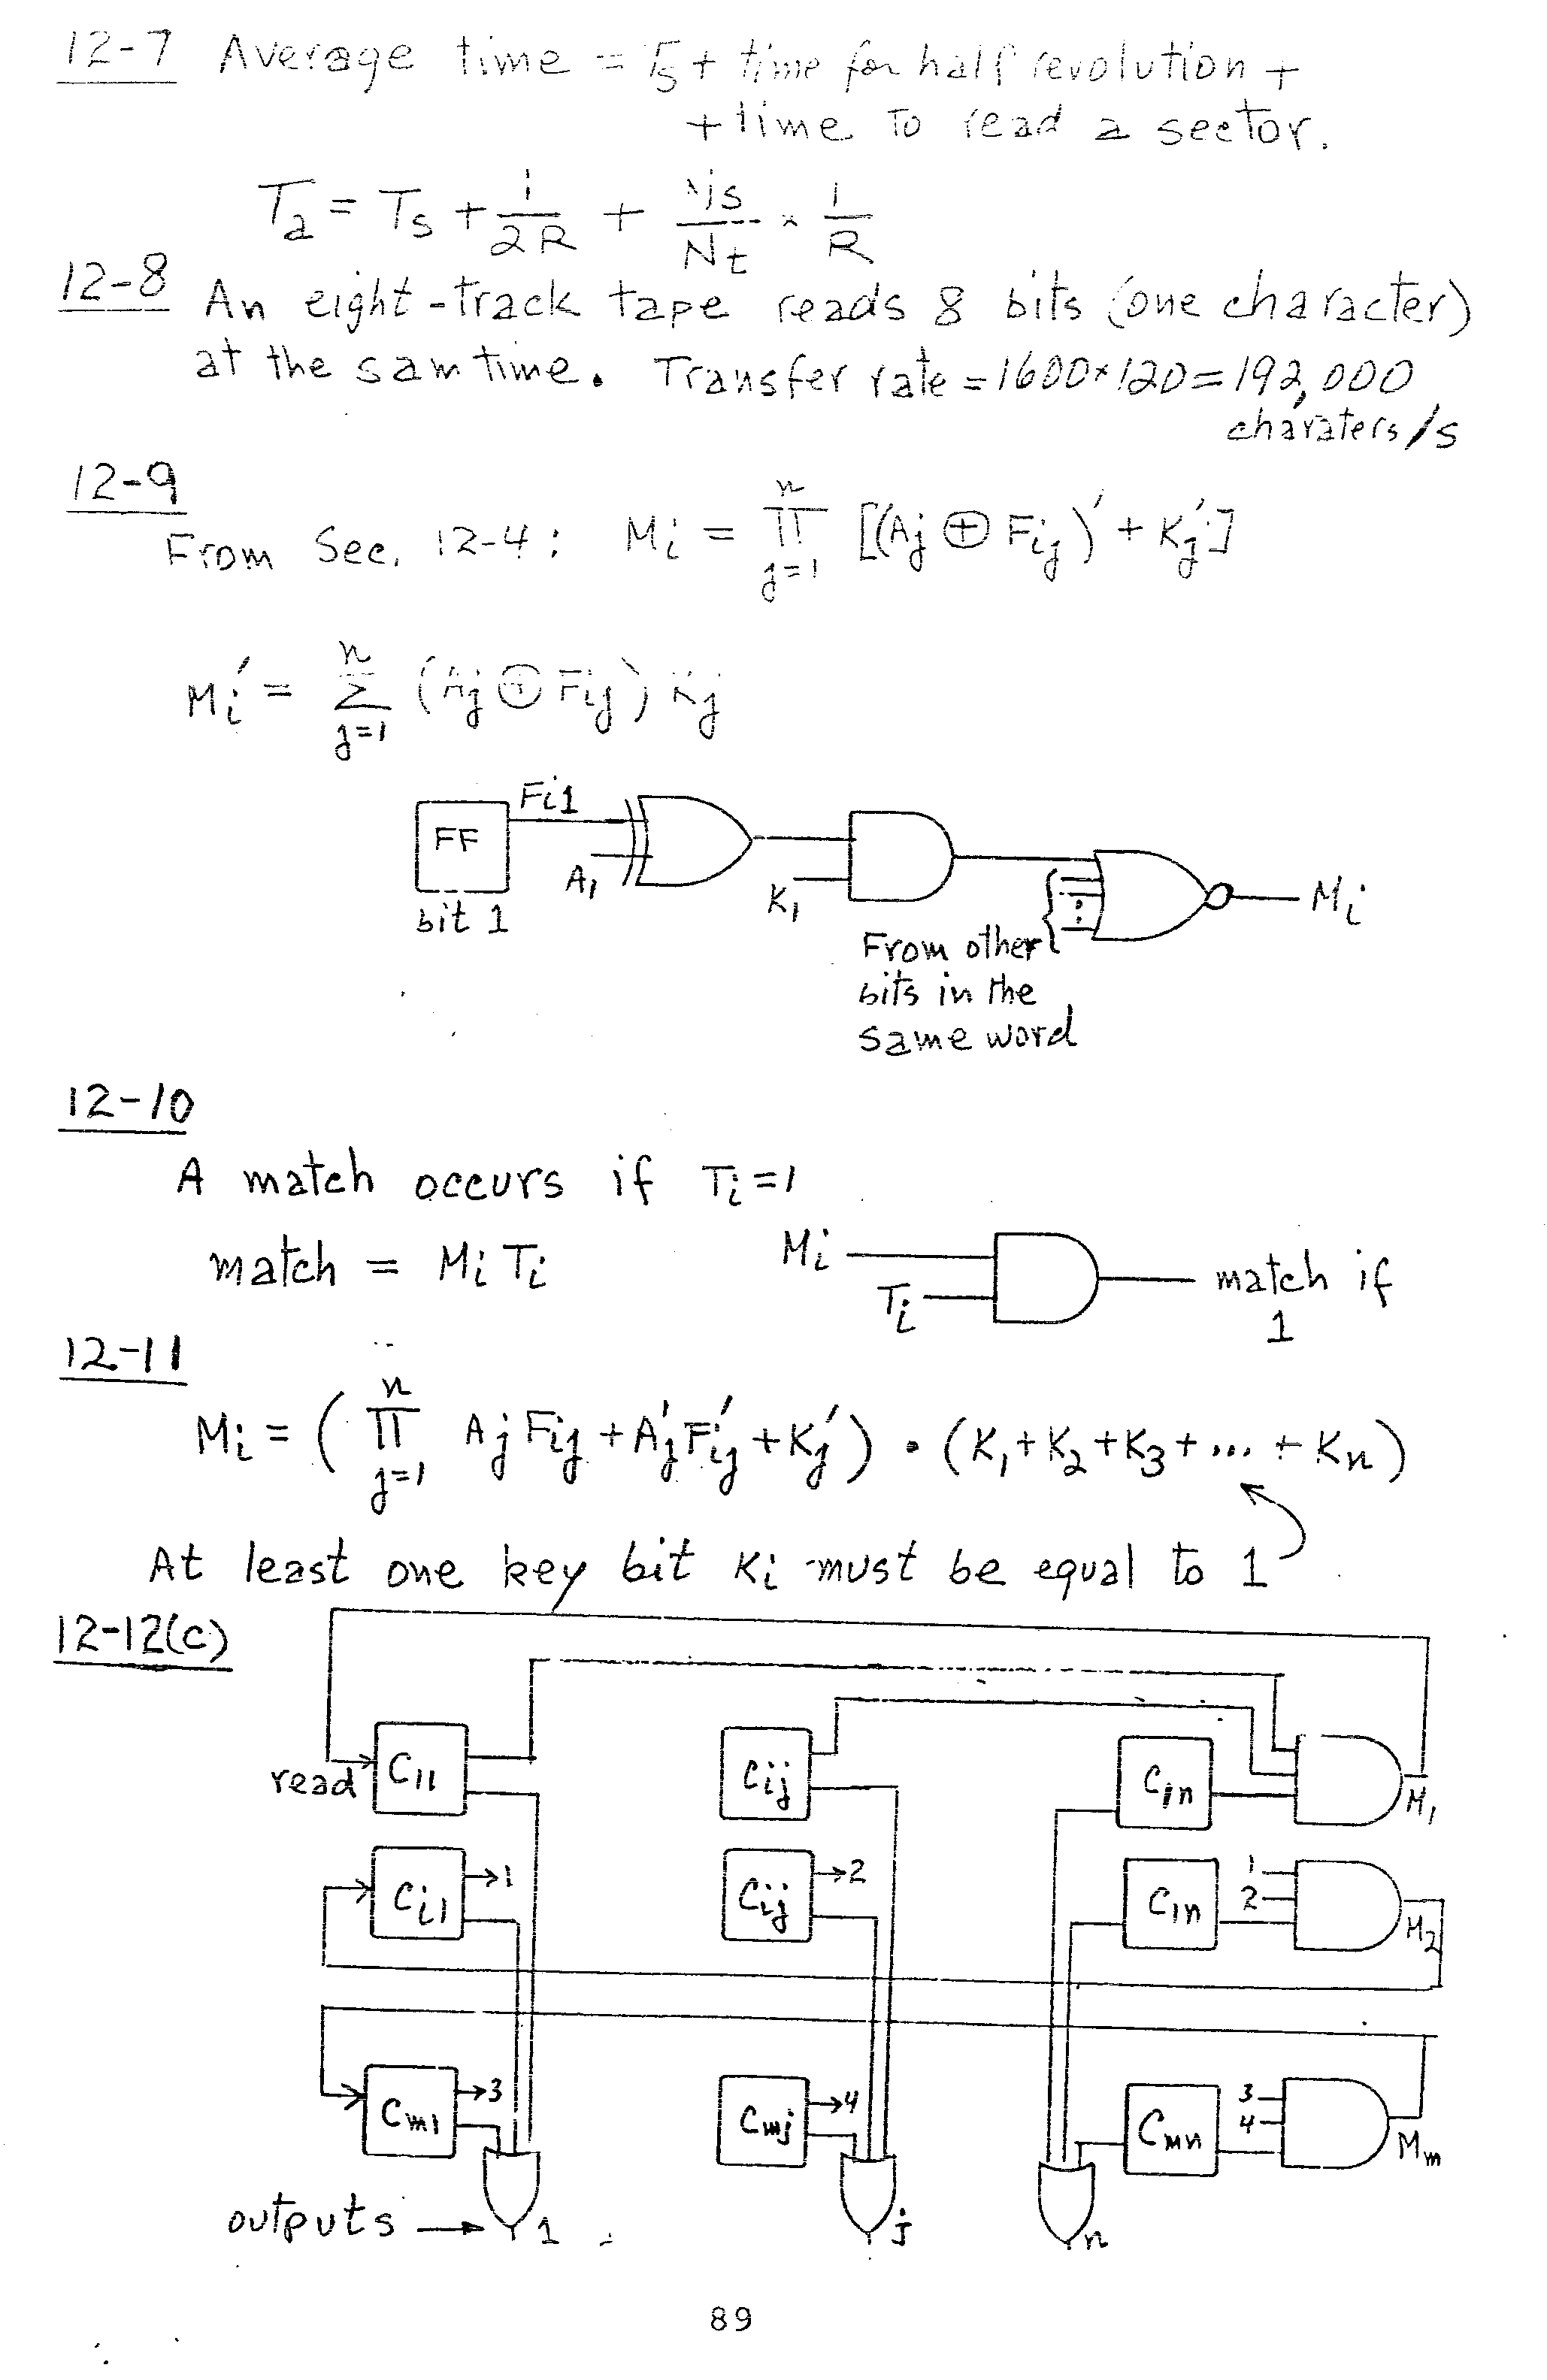 12-7 Average time = Ts + time for half revolution +
+ time to read a sector.
Ta = Ts + 1/2R + Ns/Nt × 1/R
12-8 An eight-track tape reads 8 bits (one character)
at the sam time. Transfer rate = 1600×120 = 192,000
charaters/s
12-9
From Sec. 12-4: Mi = n Π j=1 [(Aj ⊕ Fij)' + Kj']
Mi' = n Σ j=1 (Aj ⊕ Fij) Kj
Fi1
FF
A1
K1
Mi
bit 1
From other
bits in the
same word
12-10
A match occurs if Ti=1
match = Mi Ti
Mi
Ti
match if
1
12-11
Mi = ( n Π j=1 Aj Fij + A'j F'ij + K'j ) • (K1 + K2 + K3 + ... + Kn)
At least one key bit Ki must be equal to 1
12-12(c)
read C11 Cij C1n M1
Ci1 1 Cij 2 C1n 1 2 M2
Cm1 3 Cmj 4 Cmn 3 4 Mm
outputs 1 j n
89